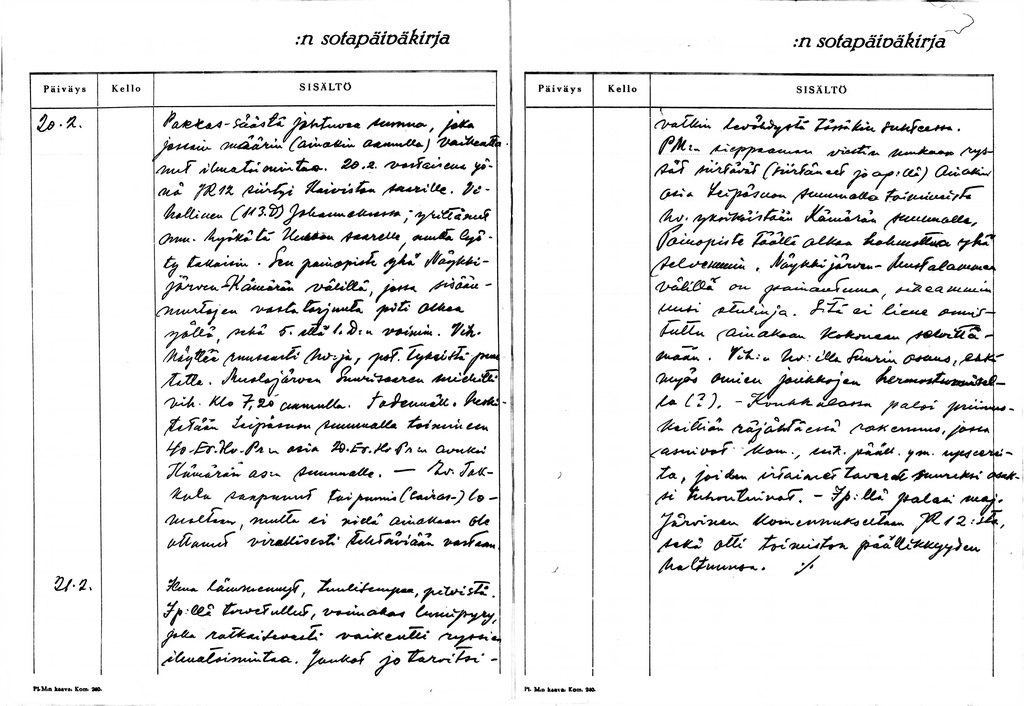 :n sotapäiväkirja
Päiväys Kello SISÄLTÖ
20.2. Pakkas-säästä johtuva summa, joka
jossain määrin (ainakin aamulla) vaikeutta-
nut ilmatoimintaa. 20.2. vastaisena yö-
nä JR12 siirtyi Koiviston saarille. Vi-
hollinen (113.D) Johanneksessa; yrittänyt
mm. hyökätä saarelle, mutta lyö-
ty takaisin. Sen painopiste yhä Näykki-
järven-Kämärän välillä, jossa sisään-
murtojen vastatorjunta piti alkaa
yöllä, sekä 5. että 1.D:n voimin. Vih.
näyttää runsaasti hv:ja, pst. tykeistä puu-
tetta. Muolajärven Suurisaaren miehitti
vih. klo 7,20 aamulla. Todennäk. keski-
tetään Leipäsuon suunnalla toimineen
40.Ev.Hv.Pr:n osia 20.Ev.Hv.Pr:n avuksi
Kämärän as:n suunnalle. —
saapunut
lomaltaan, mutta ei vielä ainakaan ole
ottanut virallisesti tehtäviään vastaan.
21.2. Ilma lämmennyt, tuulisempaa, pilvistä.
Ip:llä tuvet ullut, voimakas lumipyry,
joka ratkaisevasti vaikeutti ryssien
ilmatoimintaa. Joukot jo tarvitsi-
Pl. M:n kaava. Kom. 260.
:n sotapäiväkirja
Päiväys Kello SISÄLTÖ
vatkin levähdystä tässäkin suhteessa.
PM:n sieppaaman viestin mukaan rys-
sät siirtävät (siirtäneet jo ap:llä) ainakin
osia Leipäsuon suunnalla toimivista
hv. yksiköistään Kämärän suunnalle,
Painopiste täällä alkaa hahmottua yhä
selvemmin. Näykkijärven- Mustalammen
välillä on painautuma, oikeammin
uusi etulinja. Sitä ei liene onnis-
tuttu ainakaan kokonaan selvittä-
mään. Vih:n hv:illa suurin osuus, ehkä
myös omien joukkojen hermostumisel-
la (?). - paloi priimus-
keittiön räjähtäessä rakennus, jossa
asuivat kom., esik. päält. ym. upseerei-
ta, joiden irtaimet tavarat suureksi osak-
si tuhoutuivat. - Ip:llä palasi maj.
Järvinen komennukseltaan JR12:sta,
sekä otti toimiston päällikkyyden
haltuunsa. ./.
Pl. M:n kaava. Kom. 260.